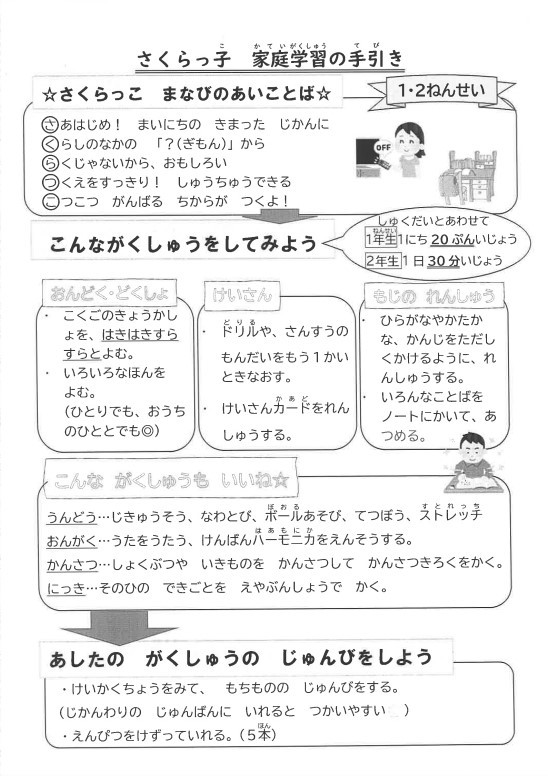 さくらっ子　家庭学習の手引き
☆さくらっこ　まなびのあいことば☆
1・2ねんせい
さあはじめ！　まいにちの　きまった　じかんに
くらしのなかの　「？（ぎもん）」から
らくじゃないから、おもしろい
つくえをすっきり！　しゅうちゅうできる
こつこつ　がんばる　ちからが　つくよ！
OFF
こんながくしゅうをしてみよう
しゅくだいとあわせて
1年生1にち 20 ぷんいじょう
2年生1日 30 分いじょう
おんどく・どくしょ
・　こくごのきょうかし
ょを、はきはきすら
すらとよむ。
・　いろいろなほんを
よむ。
（ひとりでも、おうち
のひととでも◎）
けいさん
・　ドリルや、さんすうの
もんだいをもう１かい
ときなおす。
・　けいさんカードをれん
しゅうする。
もじの　れんしゅう
・　ひらがなやかたか
な、かんじをただし
くかけるように、れ
んしゅうする。
・　いろんなことばを
ノートにかいて、あ
つめる。
こんな　がくしゅうも　いいね☆
うんどう…じきゅうそう、なわとび、ボールあそび、てつぼう、ストレッチ
おんがく…うたをうたう、けんばんハーモニカをえんそうする。
かんさつ…しょくぶつや　いきものを　かんさつして　かんさつきろくをかく。
にっき…そのひの　できごとを　えやぶんしょうで　かく。
あしたの　がくしゅうの　じゅんびをしよう
・けいかくちょうをみて、　もちものの　じゅんびをする。
（じかんわりの　じゅんばんに　いれると　つかいやすい　）
・えんぴつをけずっていれる。（５本）